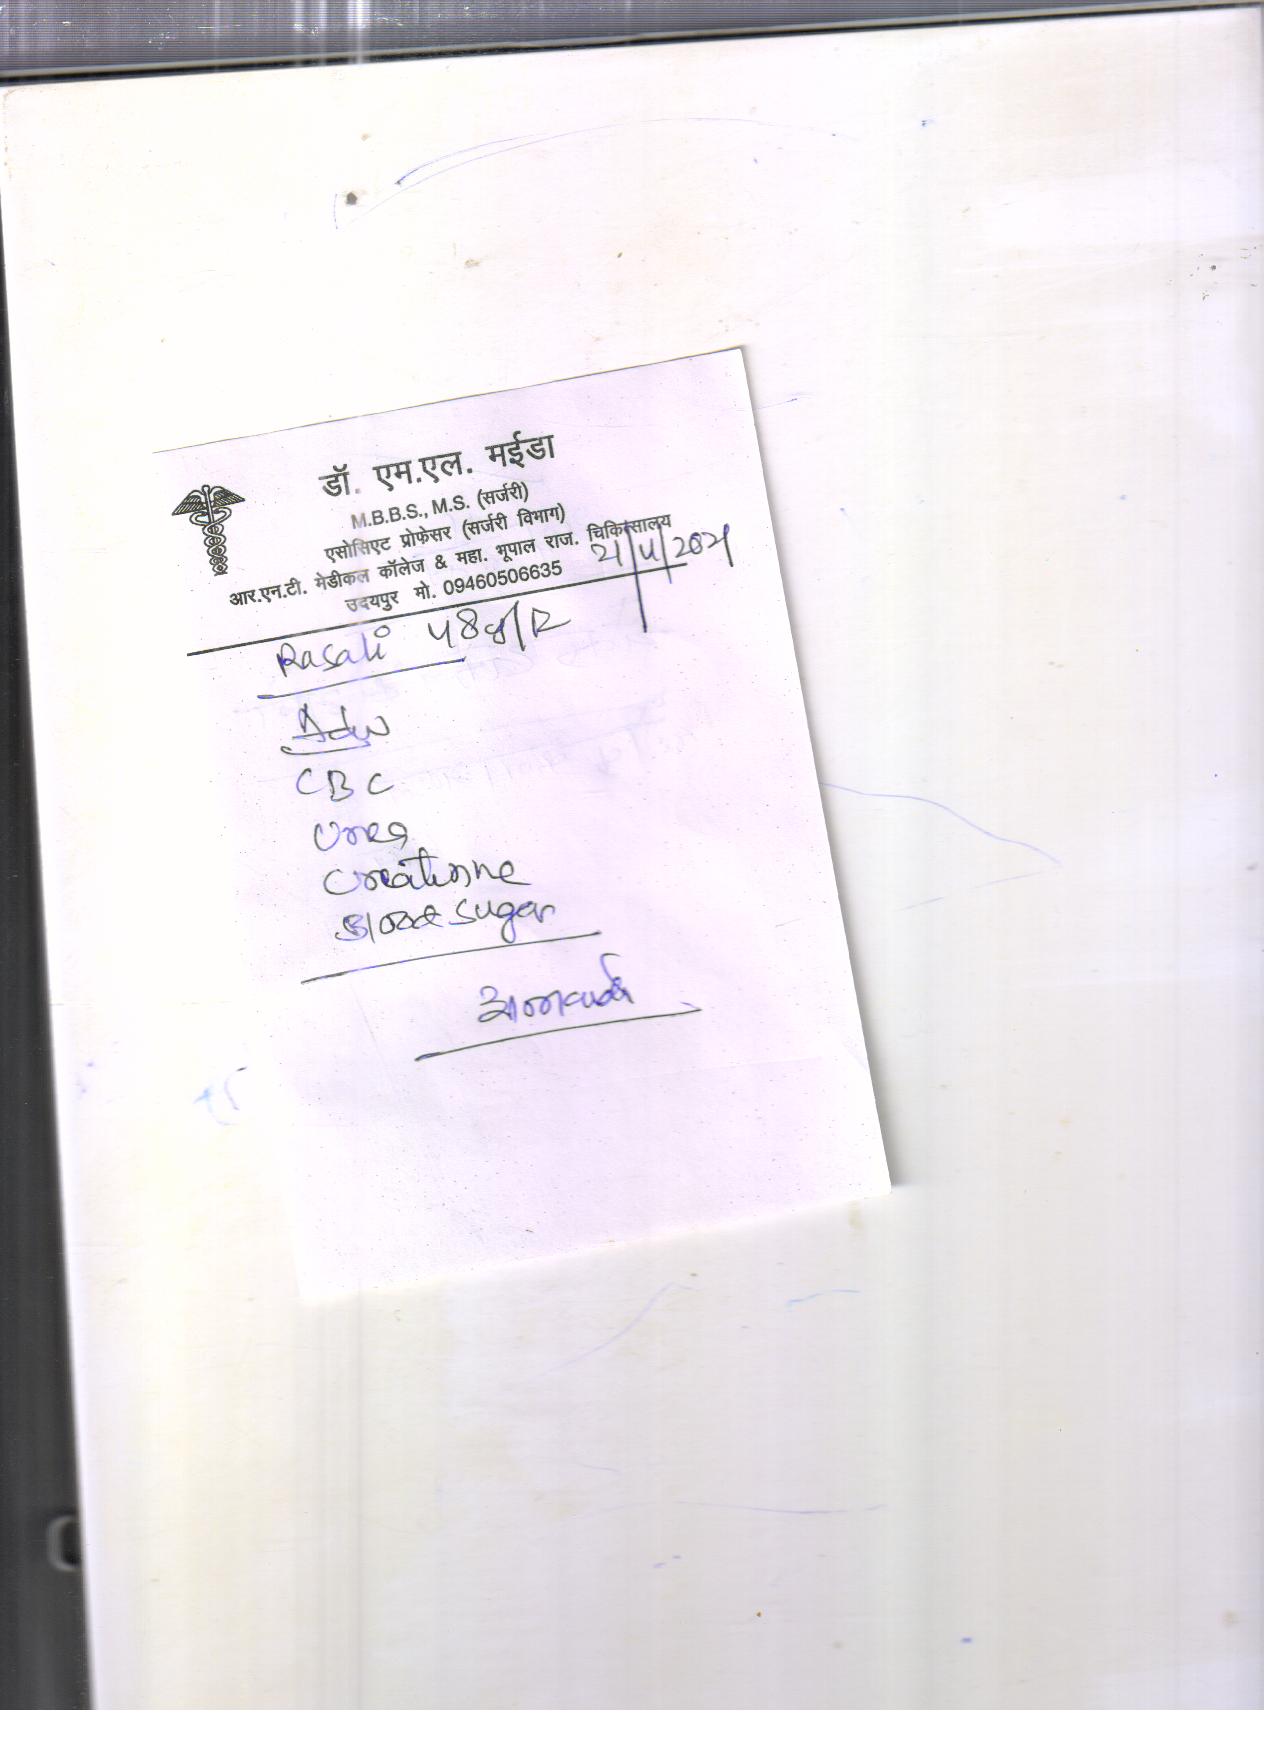 डॉ. एम.एल. मईडा
M.B.B.S., M.S. (सर्जरी)
एसोसिएट प्रोफेसर (सर्जरी विभाग)
आर.एन.टी. मेडीकल कॉलेज & महा. भूपाल राज. चिकित्सालय
उदयपुर मो. 09460506635
21/4/2021
Rasali 48y/
Adv
CBC
Urea
Creatinne
Blood Sugar